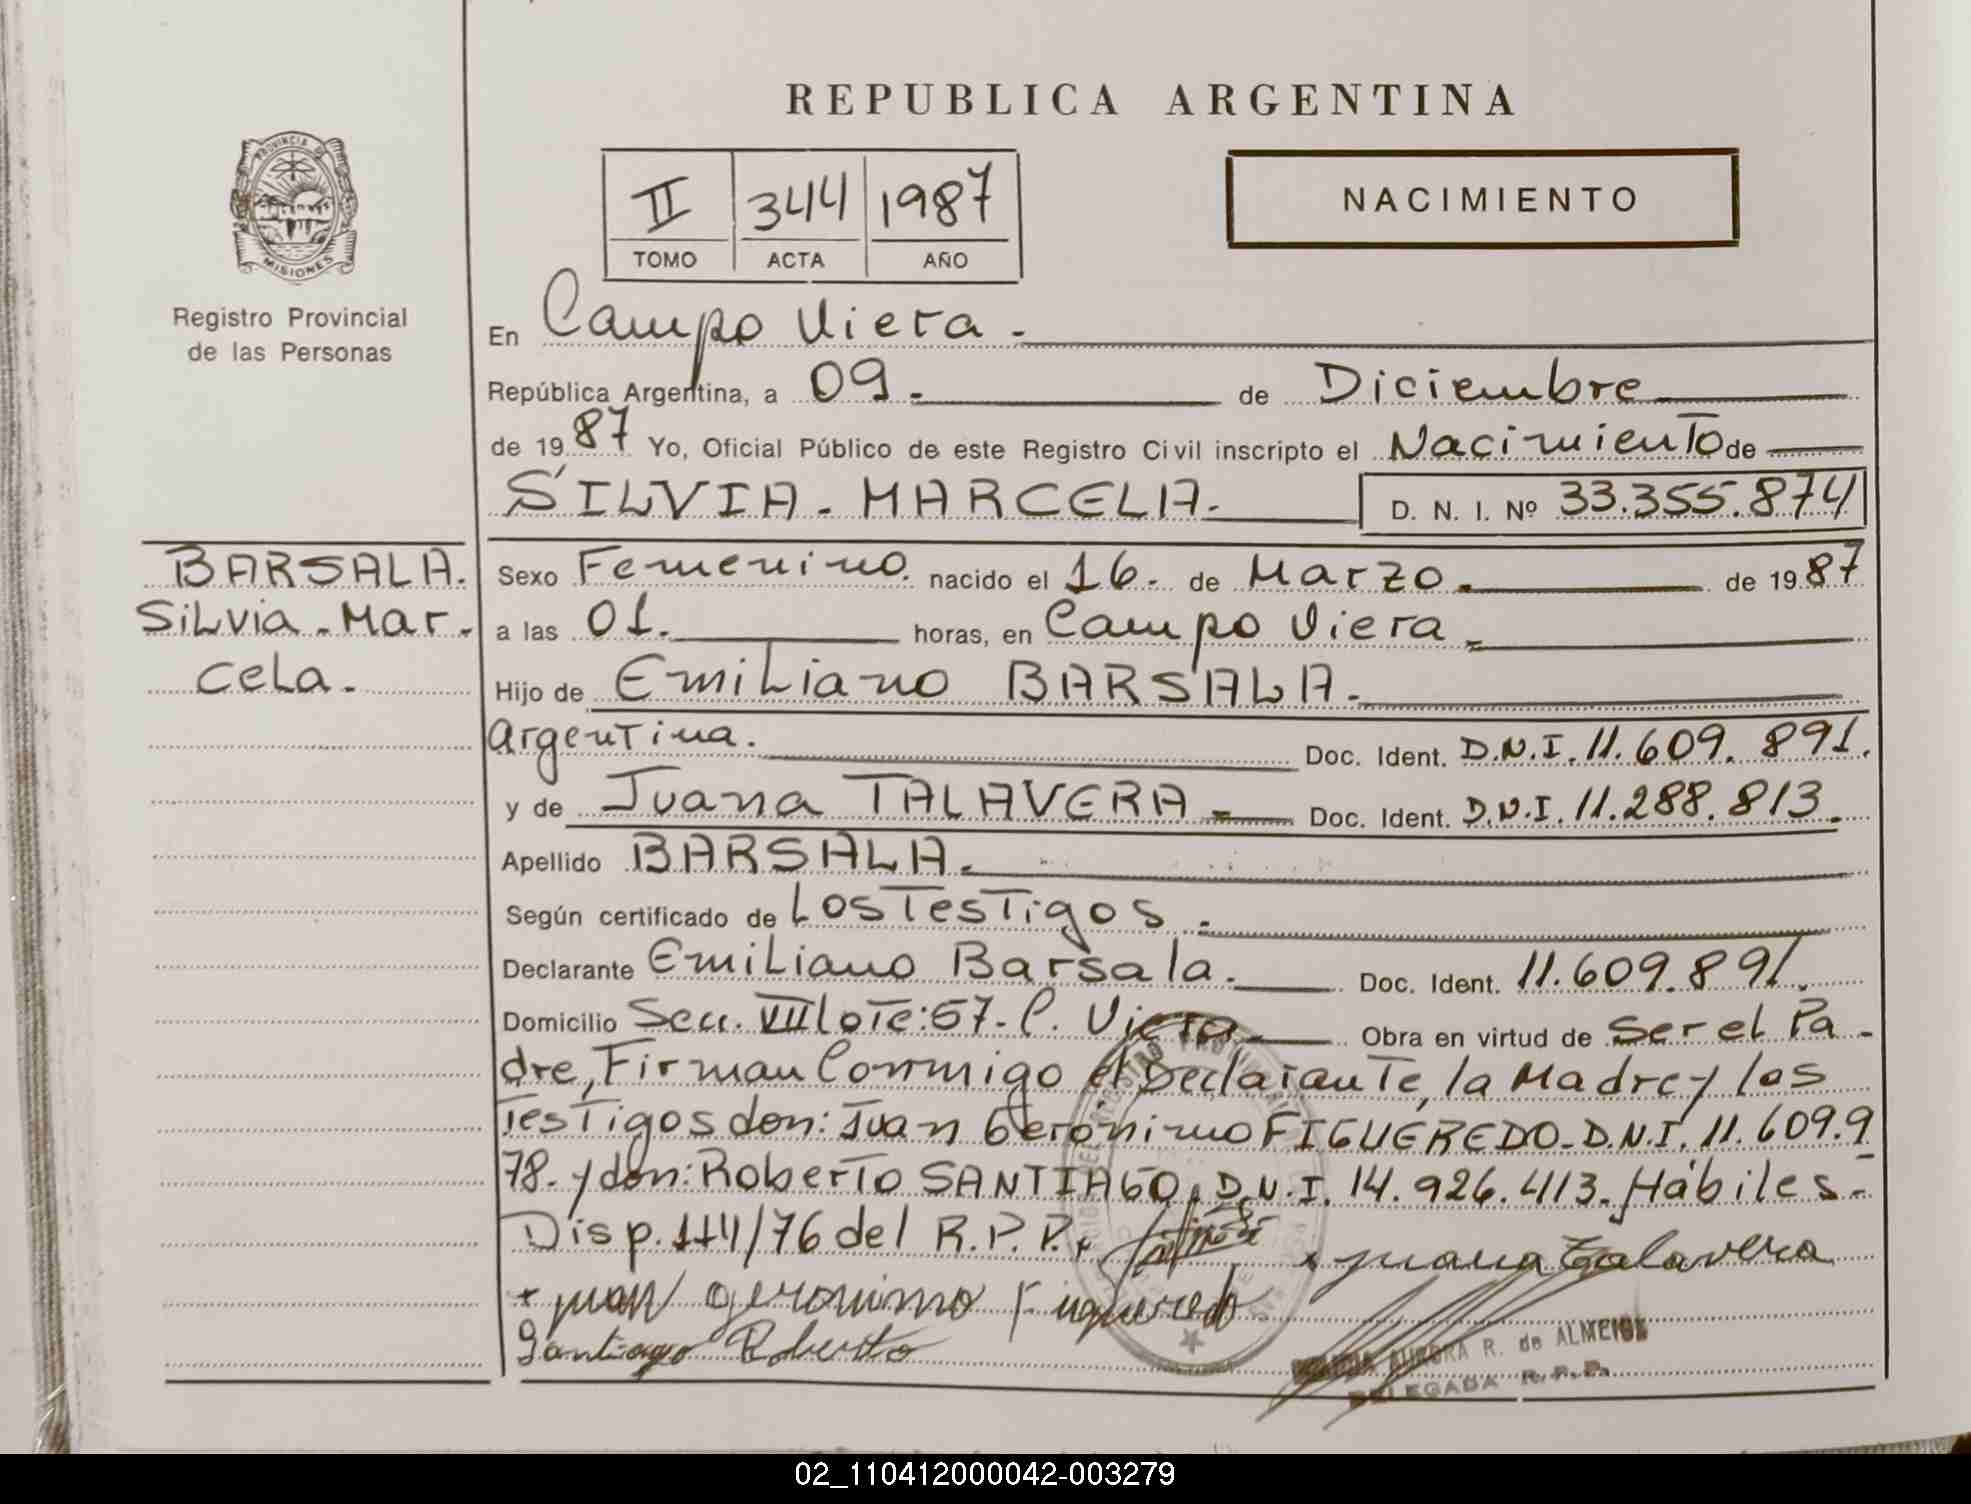 REPUBLICA ARGENTINA
PROVINCIA DE
MISIONES
Registro Provincial
de las Personas
II 344 1987
TOMO ACTA AÑO
NACIMIENTO
En Campo Viera.
República Argentina, a 09. de Diciembre
de 1987 Yo, Oficial Público de este Registro Civil inscripto el Nacimiento de
SILVIA. MARCELA. D. N. I. Nº 33.355.874
BARSALA.
Silvia. Mar.
cela.
Sexo Femenino. nacido el 16. de Marzo. de 1987
a las 01. horas, en Campo Viera.
Hijo de Emiliano BARSALA.
Argentina. Doc. Ident. D.N.I. 11.609.891.
y de Juana TALAVERA. Doc. Ident. D.N.I. 11.288.813.
Apellido BARSALA.
Según certificado de Los Testigos.
Declarante Emiliano Barsala. Doc. Ident. 11.609.891.
Domicilio Secc. VII lote: 67. C. Viera Obra en virtud de Ser el Pa-
dre, Firman Conmigo el Declarante, la Madre y los
Testigos don: Juan Gerónimo FIGUEREDO. D.N.I. 11.609.9
78. y don: Roberto SANTIAGO. D.N.I. 14.926.413. Hábiles.-
Disp. 114/76 del R.P.P.
x Juana Talavera
x juan geronimo Figueredo
Santiago Roberto
AURORA R. de ALMEIDA
DELEGADA R.P.P.
02_110412000042-003279